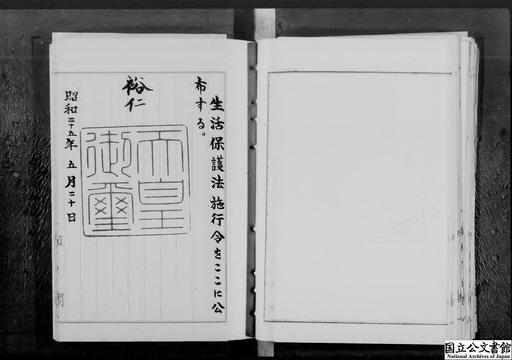 生活保護法施行令をここに公
布する。
裕仁
天皇
御璽
昭和二十五年五月二十日
国立公文書館
National Archives of Japan